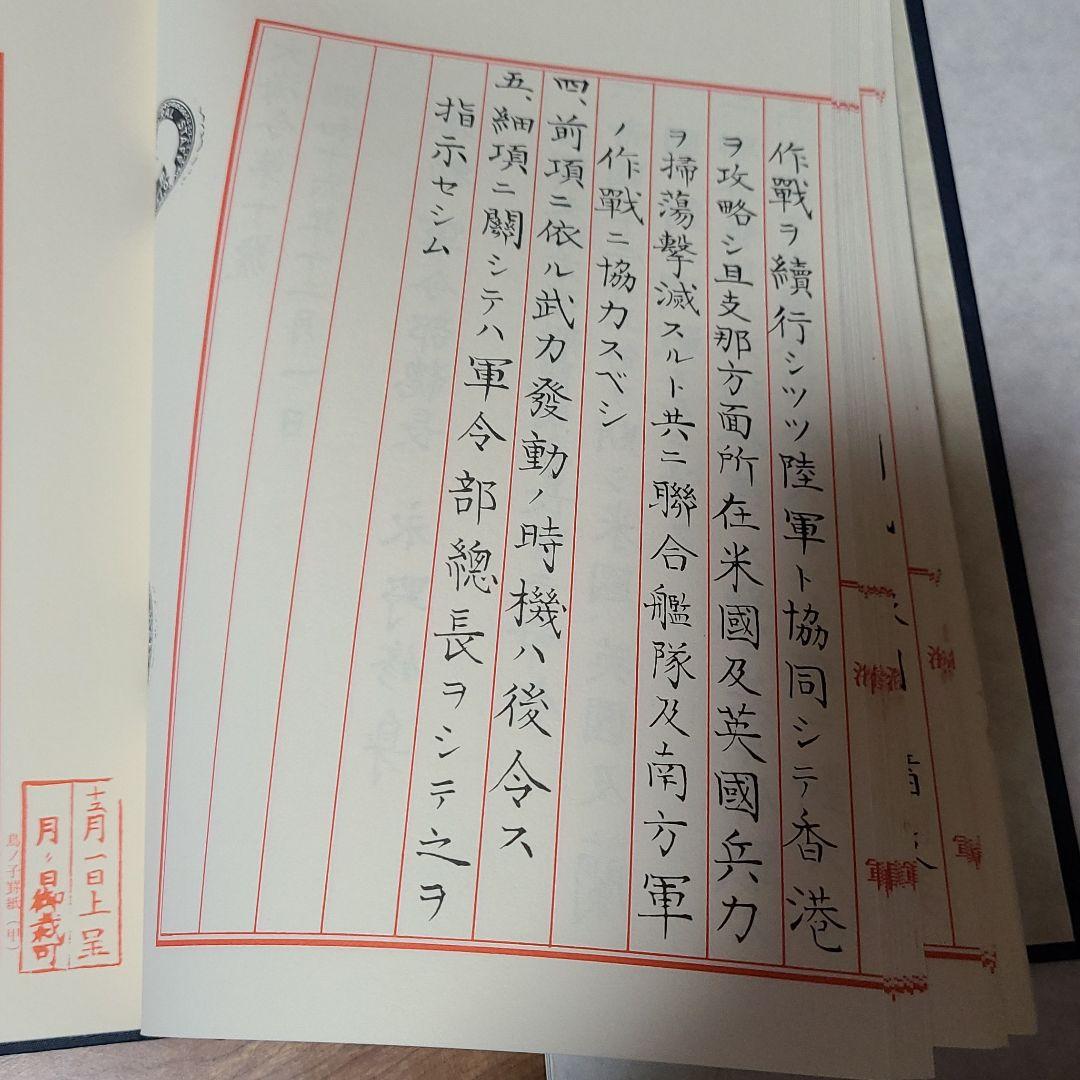 作戰ヲ續行シツツ陸軍ト協同シテ香港
ヲ攻略シ且支那方面所在米國及英國兵力
ヲ掃蕩擊滅スルト共ニ聯合艦隊及南方軍
ノ作戰ニ協力スベシ
四、前項ニ依ル武力發動ノ時機ハ後令ス
五、細項ニ關シテハ軍令部總長ヲシテ之ヲ
指示セシム
十二月一日上呈
月〃日御裁可